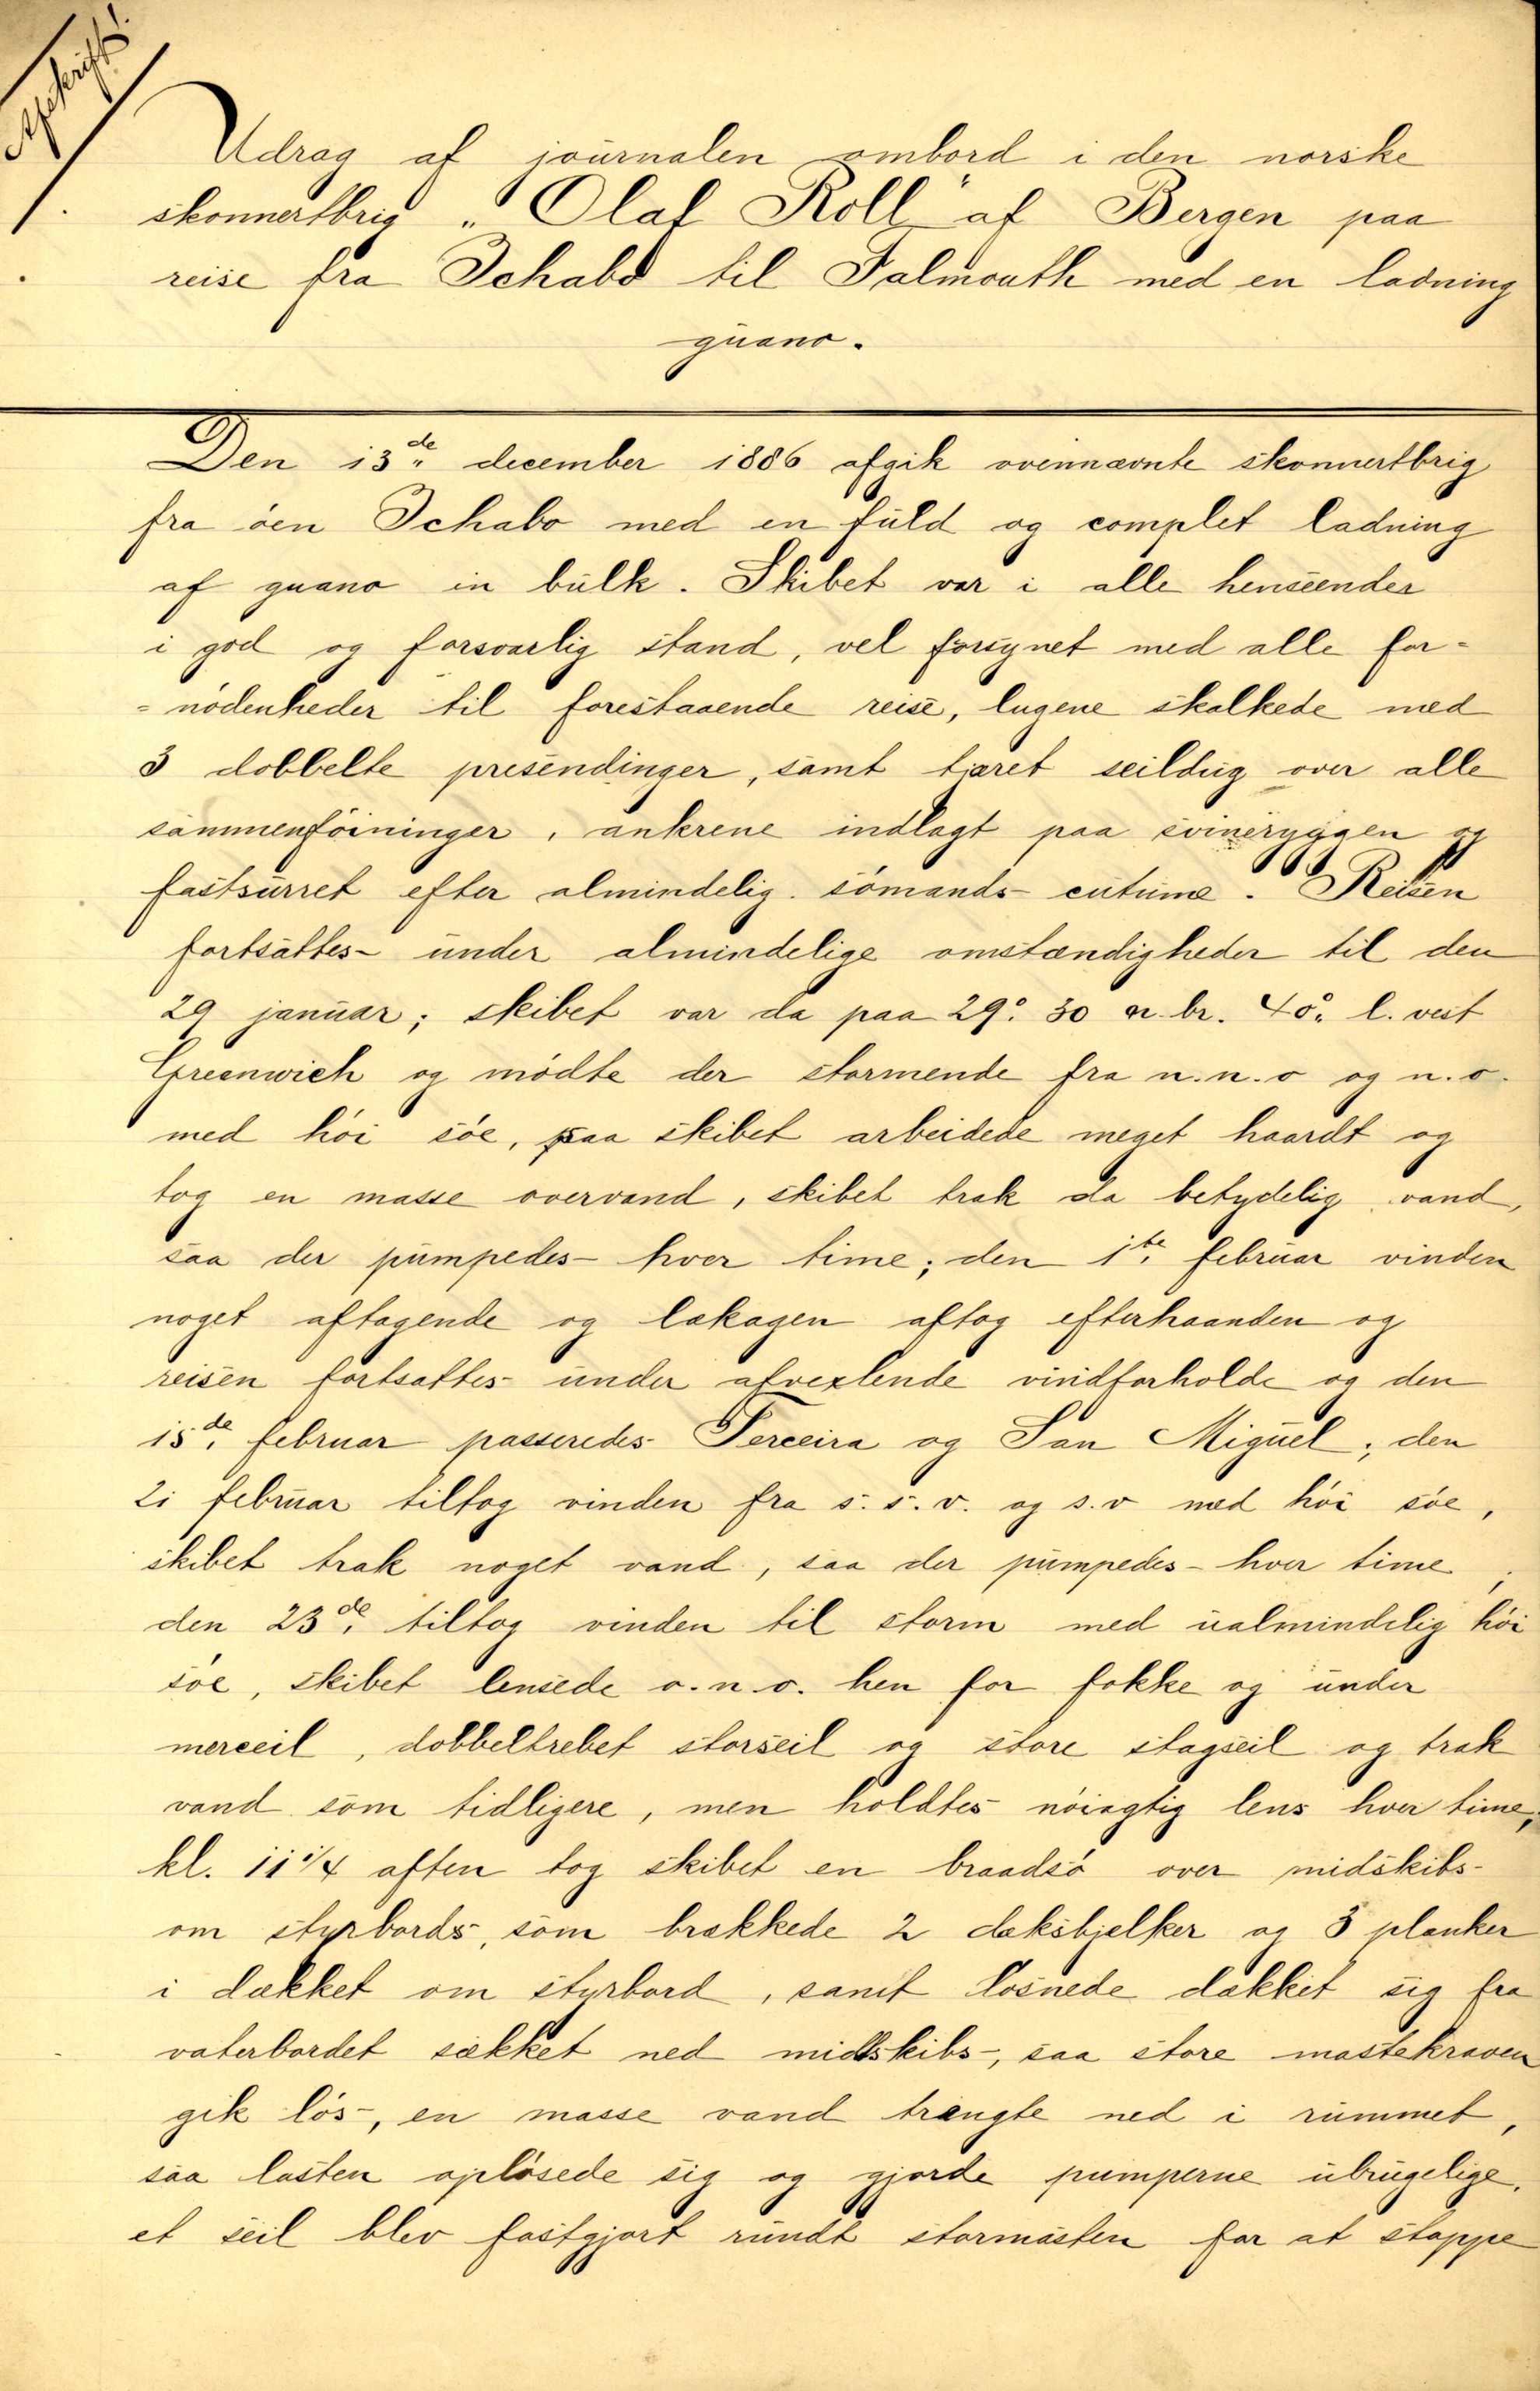 Afskrift!
Udrag af journalen ombord i den norske
skonnertbrig „Olaf Roll" af Bergen paa
reise fra Ichabo til Falmouth med en ladning
guano.
Den 13de december 1886 afgik ovennævnte skonnertbrig
fra öen Ichabo med en fuld og complet ladning
af guano in bulk. Skibet var i alle henseender
i god og forsvarlig stand, vel forsynet med alle for-
=nödenheder til forestaaende reise, lugene skalkede med
3 dobbelte presendinger, samt tjæret seildug over alle
sammenföininger, ankrene indlagt paa svineryggen og
fastsurret efter almindelig sömands-cutume. Reisen
fortsattes under almindelige omstændigheder til den
29 januar; skibet var da paa 29° 30 n. br. 40° l. vest
Greenwich og mödte der stormende fra n.n.o og n.o.
med höi söe, paa skibet arbeidede meget haardt og
tog en masse overvand, skibet trak da betydelig vand,
saa der pumpedes hver time; den 1te februar vinden
noget aftagende og lækagen aftog efterhaanden og
reisen fortsattes under afvexlende vindforholde og den
15de februar passeredes Terceira og San Miguel; den
21 februar tiltog vinden fra s.s.v. og s.v med höi söe,
skibet trak noget vand, saa der pumpedes hver time;
den 23de tiltog vinden til storm med ualmindelig höi
söe, skibet lensede o.n.o. hen for fokke og under
merseil, dobbeltrebet storseil og store stagseil og trak
vand som tidligere, men holdtes nöiagtig lens hver time;
kl. 11 1/4 aften tog skibet en braadsö over midskibs
om styrbords, som brækkede 2 dæksbjelker og 3 planker
i dækket om styrbord, samt lösnede dækket sig fra
vaterbordet sækket ned midtskibs, saa store mastekraven
gik lös, en masse vand trængte ned i rummet,
saa lasten oplösede sig og gjorde pumperne ubrugelige,
et seil blev fastgjort rundt stormasten for at stoppe